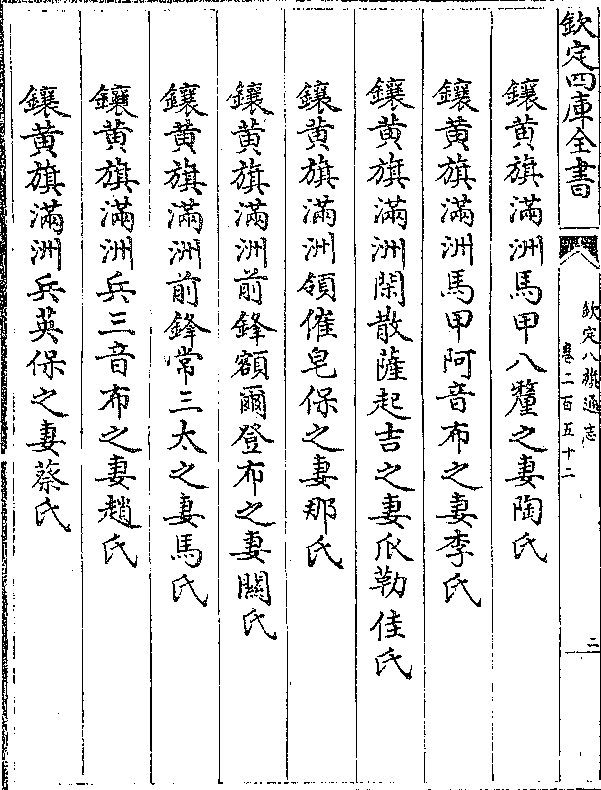 欽定四庫全書
欽定八旗通志
卷二百五十二
二
鑲黃旗滿洲馬甲八釐之妻陶氏
鑲黃旗滿洲馬甲阿音布之妻李氏
鑲黃旗滿洲閑散薩起吉之妻瓜勒佳氏
鑲黃旗滿洲領催皂保之妻那氏
鑲黃旗滿洲前鋒額爾登布之妻關氏
鑲黃旗滿洲前鋒常三太之妻馬氏
鑲黃旗滿洲兵三音布之妻趙氏
鑲黃旗滿洲兵英保之妻蔡氏